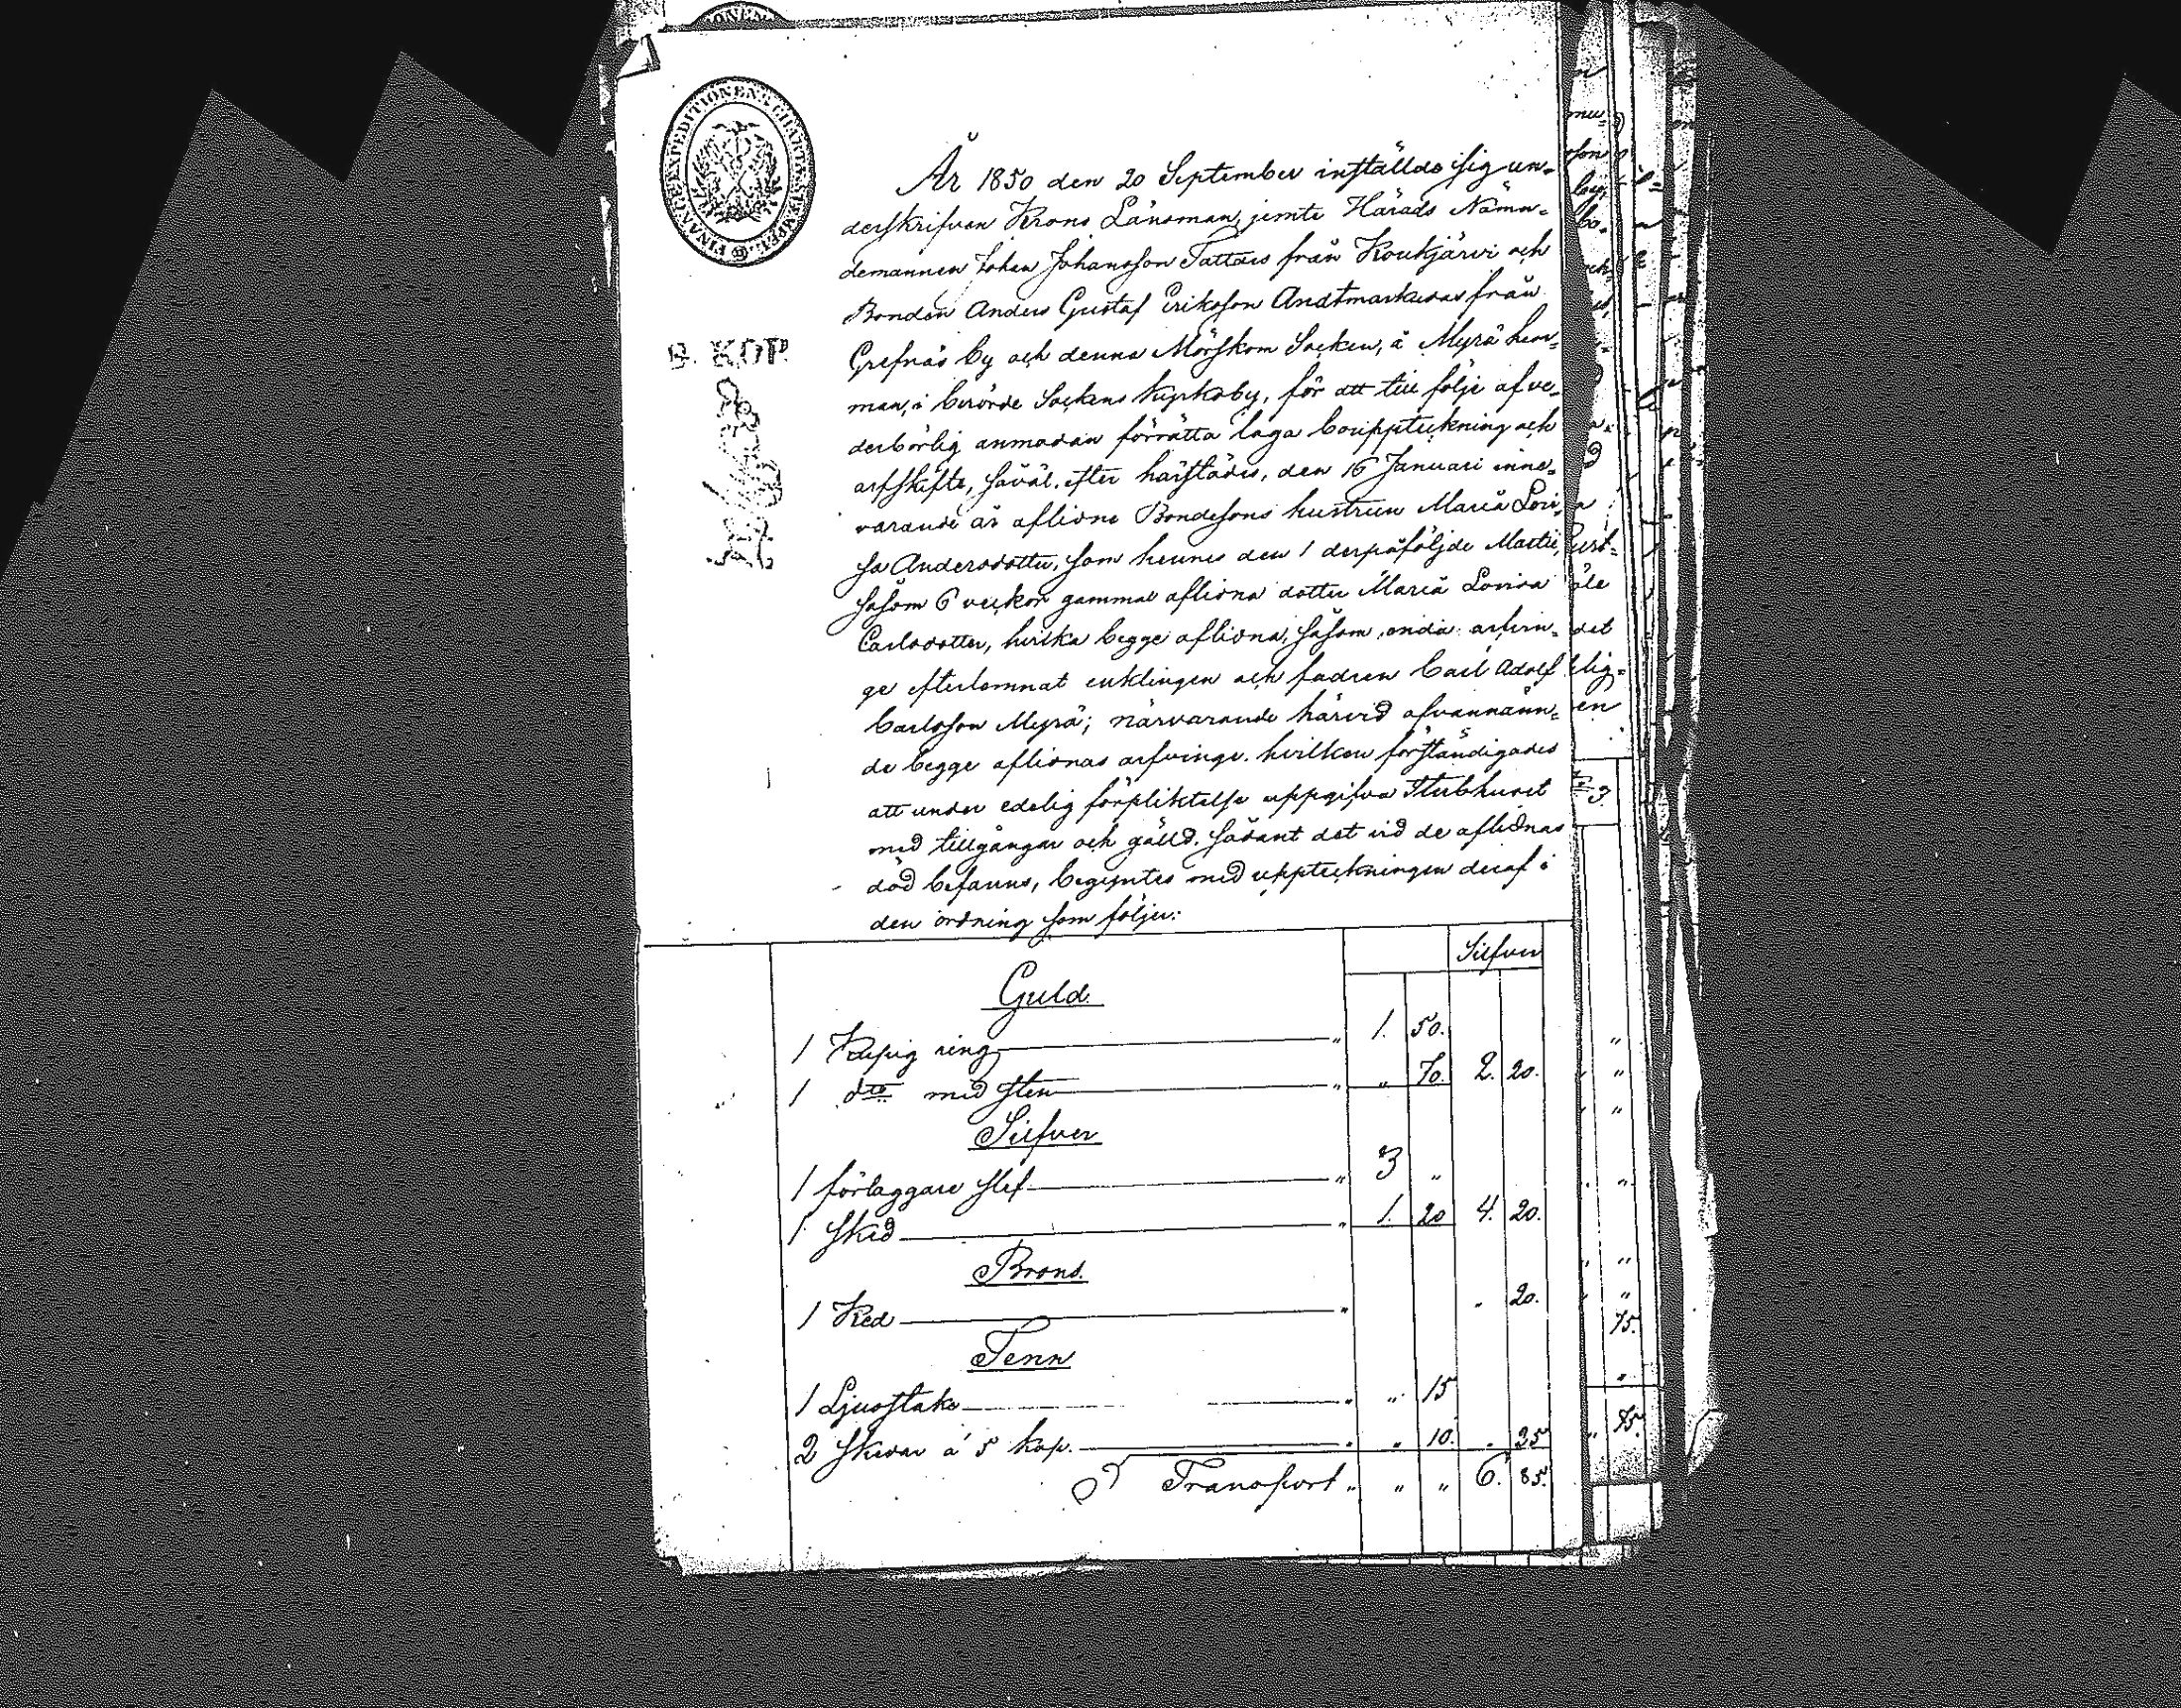 FINANCE EXPEDITIONENS CHARTÆ STEMPEL
År 1850 den 20 September inställde sig un-
derskrifven Krono Länsman, jemte Härads Nämn-
demannen Johan Johansson Tattars från Koukjärvi och
Bonden Anders Gustaf Eriksson Andtmarkuras från
Grefnäs by och denna Mörskom Socken, å Myrä hem-
man, i berörde Sockens Kyrkoby, för att till följe af ve-
derbörlig anmodan förrätta laga bouppteckning och
arfskifte, såväl efter härstädes, den 16 Januari inne-
varande år aflidne Bondesons hustrun Maria Lovi-
sa Andersdotter, som hennes den 1 derpåföljde Martii,
såsom 6 veckor gammal aflidna dotter Maria Lovisa
Carlsdotter, hvilka begge aflidna, såsom enda arfvin-
ge efterlemnat enklingen och fadren Carl Adolf
Carlsson Myrä; närvarande härvid ofvannämn-
de begge aflidnas arfvinge, hvilken förständigades
att under edelig förpliktelse uppgifva Sterbhuset
med tillgångar och gäld, sådant det vid de aflidnas
död befanns, begyntes med uppteckningen deraf i
den ordning som följer:
Silfver
Guld.
1 ring " 1. 50.
1 dto med sten " " 70. 2. 20.
Silfver
1 förläggare slef " 3 "
1 sked " 1. 20 4. 20.
Brons.
1 Ked " " 20.
Tenn
1 Ljusstake " " 15
2 skedar á 5 kop. " " 10. " 25
Transport " " " 6. 85.